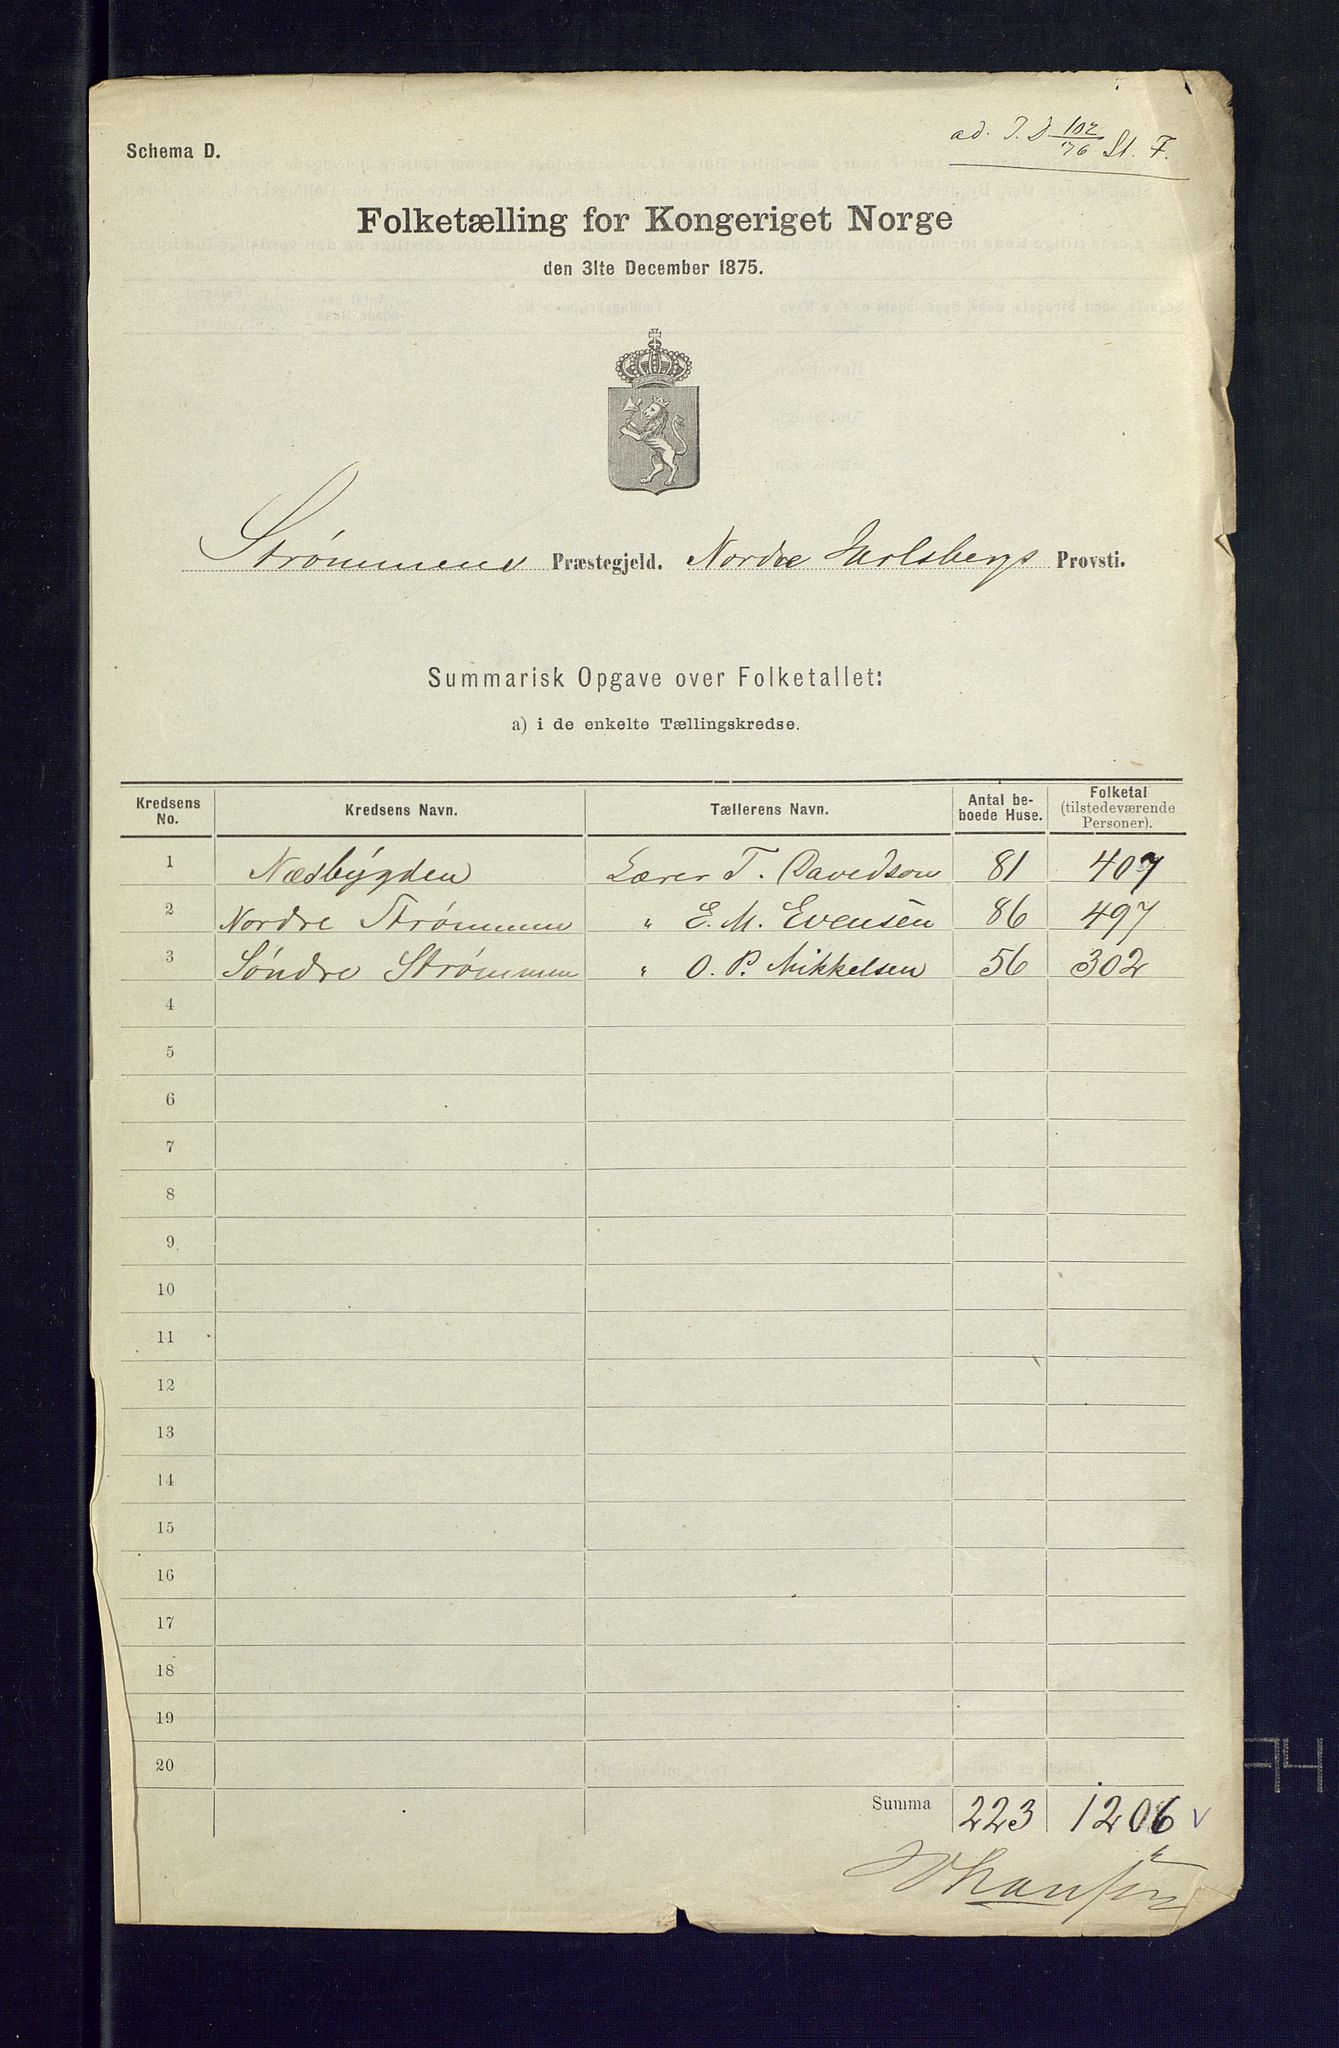 ad. J. D. 102/76 St. F.
Schema D.
Folketælling for Kongeriget Norge
den 31te December 1875.
Strømmens Præstegjeld. Nordre Jarlsbergs Provsti.
Summarisk Opgave over Folketallet:
a) i de enkelte Tællingskredse.
Kredsens No. Kredsens Navn. Tællerens Navn. Antal beboede Huse. Folketal (tilstedeværende Personer).
1 Næsbygden Lærer T. Davidson 81 407
2 Nordre Strømmen " E. M. Evensen 86 497
3 Søndre Strømmen " O. P. Mikkelsen 56 302
4
5
6
7
8
9
10
11
12
13
14
15
16
17
18
19
20
Summa 223 1206 v